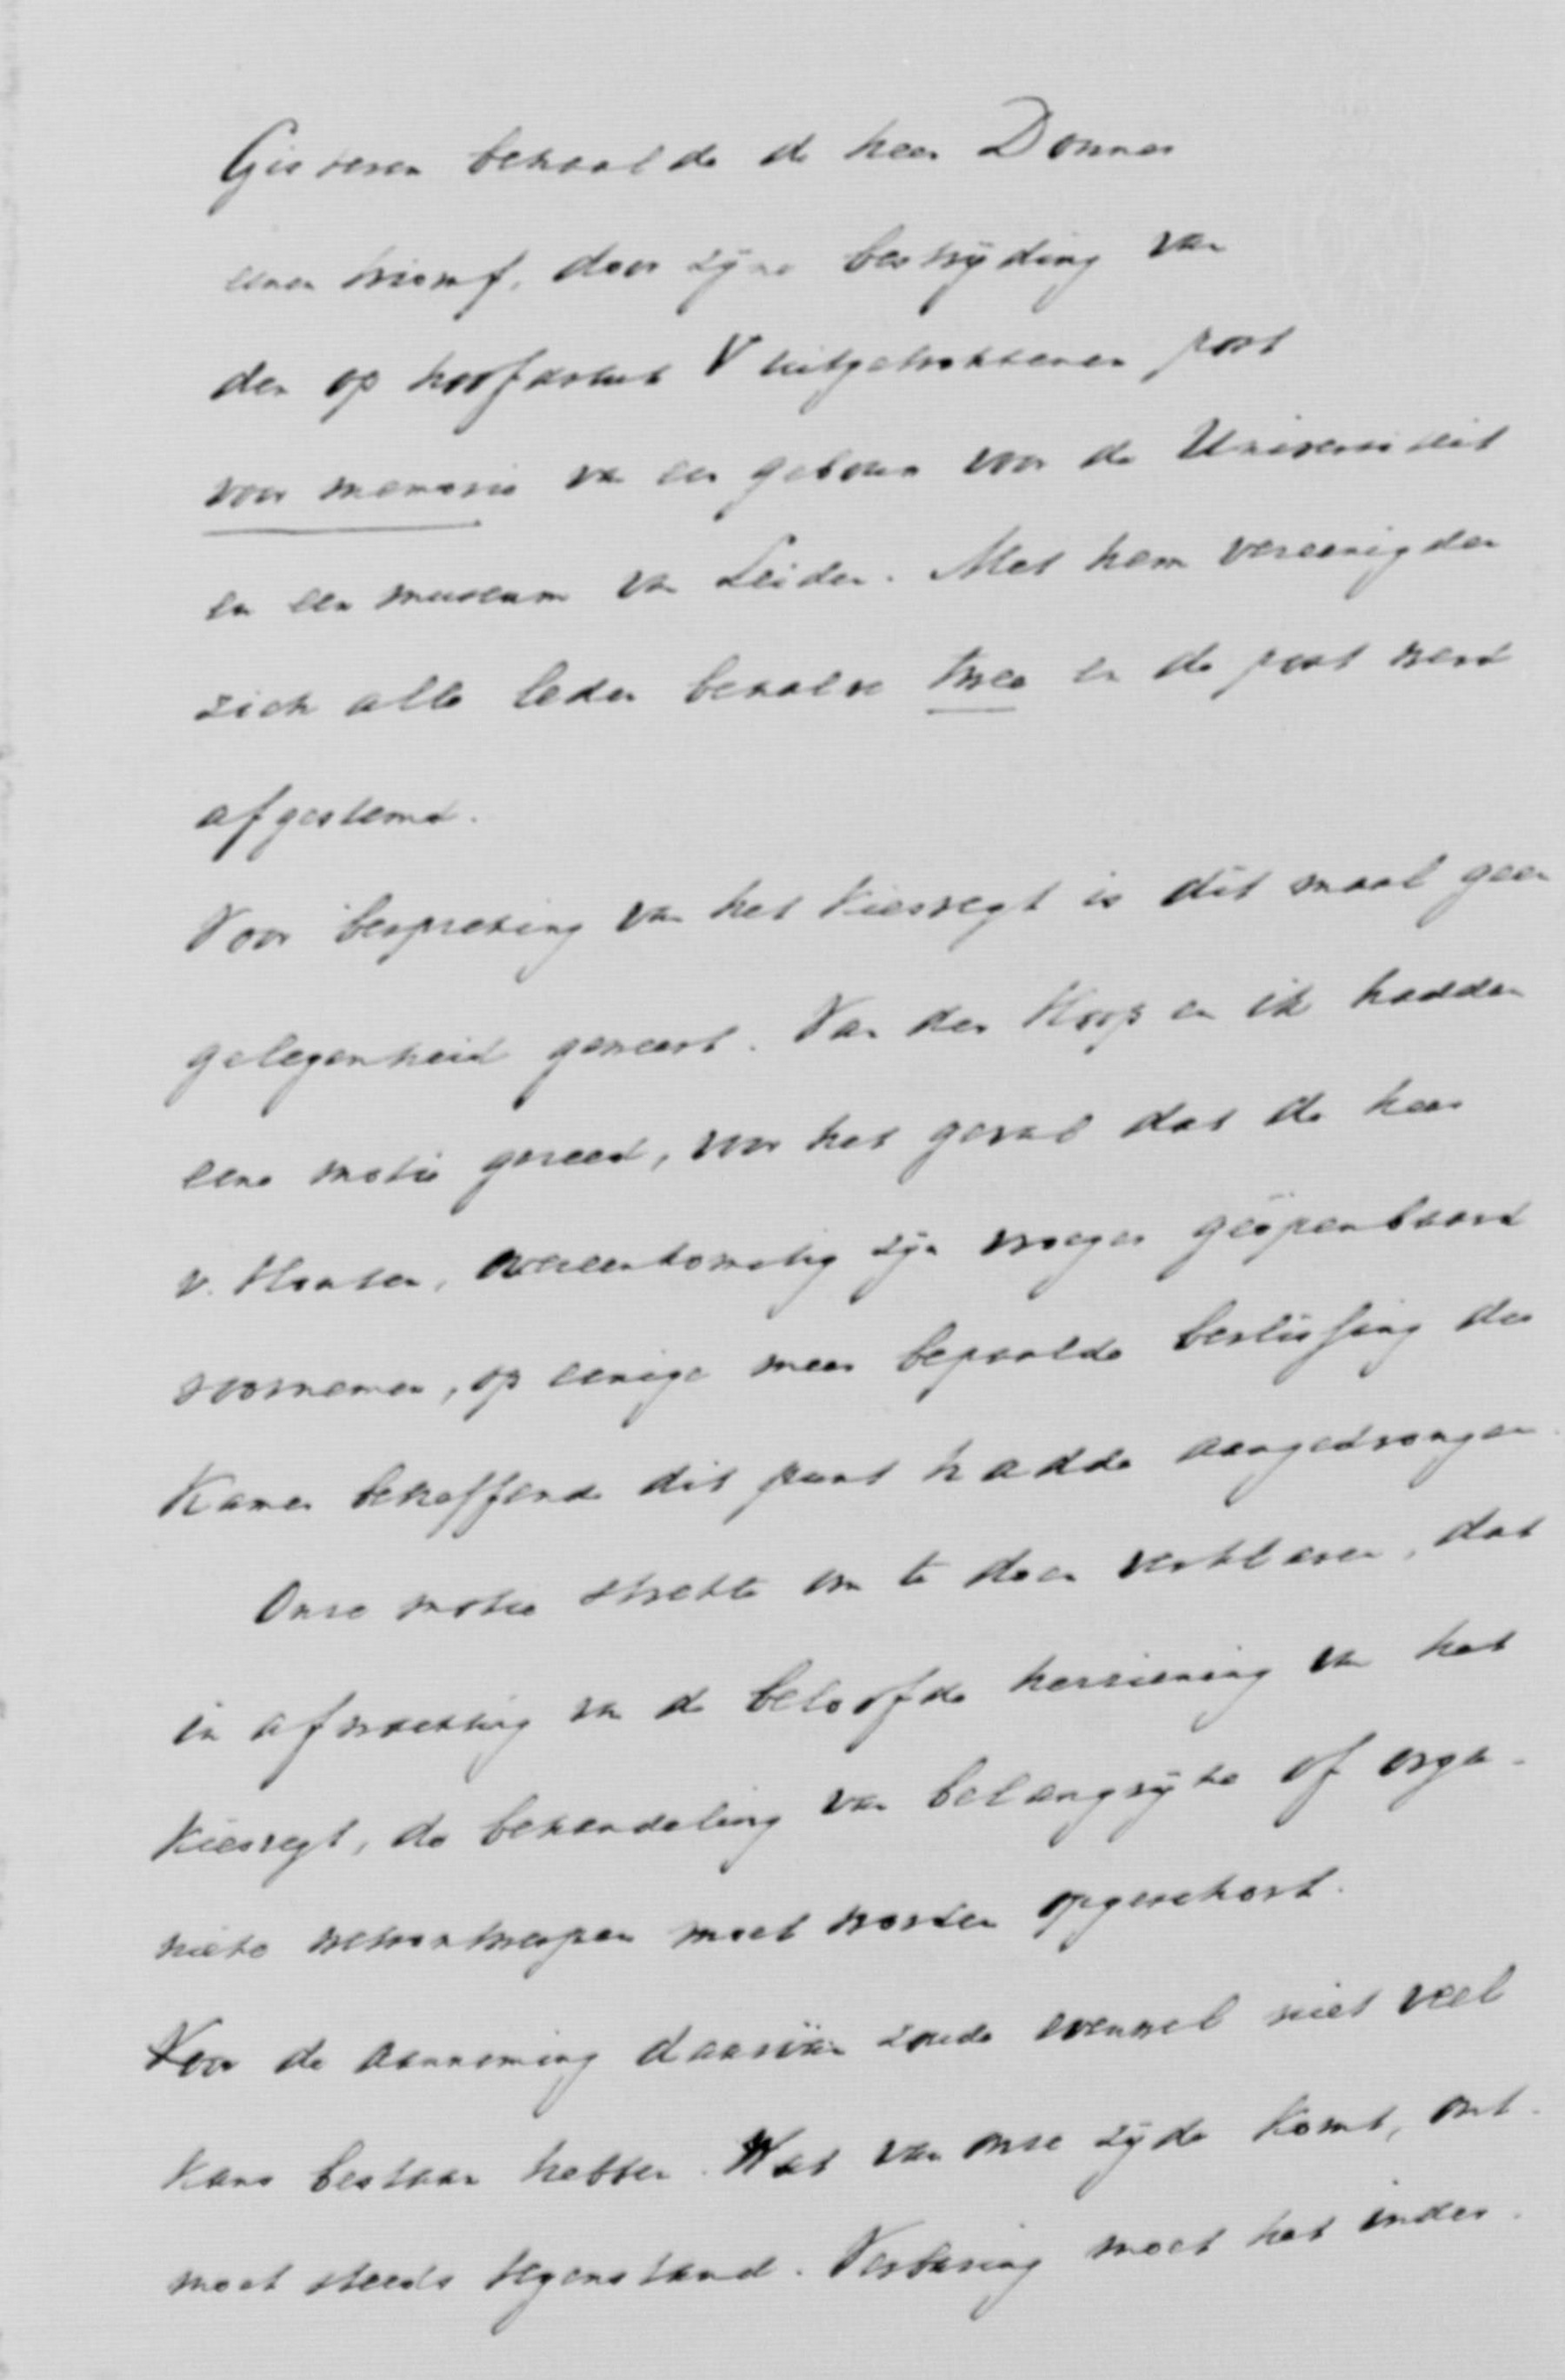 Gisteren behaalde de heer Donner
eenen triomf, door zijne bestrijding van
den op hoofdstuk V uitgetrokkenen post
voor memorie van een gebouw voor de Universiteit
en een museum van Leiden. Met hem vereenigden
zich alle leden behalve twee en de post werd
afgestemd.
Voor bespreking van het Kiesregt is dit maal geen
gelegenheid geweest. Van der Hoop en ik hadden
eene motie gereed, voor het geval dat de heer
v. Houten, overeenkomstig zijn vroeger geöpenbaard
voornemen, op eenige meer bepaalde beslissing der
Kamer betreffende dit punt hadde aangedrongen.
Onze motie strekte om te doen verklaren, dat
in afwachting van de beloofde herziening van het
Kiesregt, de behandeling van belangrijke of orga-
nieke wetsontwerpen moet worden opgeschort.
Voor de aanneming daarvan zoude evenwel niet veel
kans bestaan hebben. Wat van onze zijde komt, ont-
moet steeds tegenstand. Verbazing moet het indes-